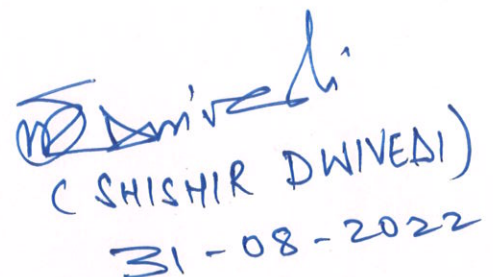 Dwivedi
(SHISHIR DWIVEDI)
31-08-2022